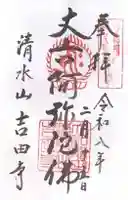 奉拝
令和八年
二月
大方阿弥陀佛
清水山吉田寺